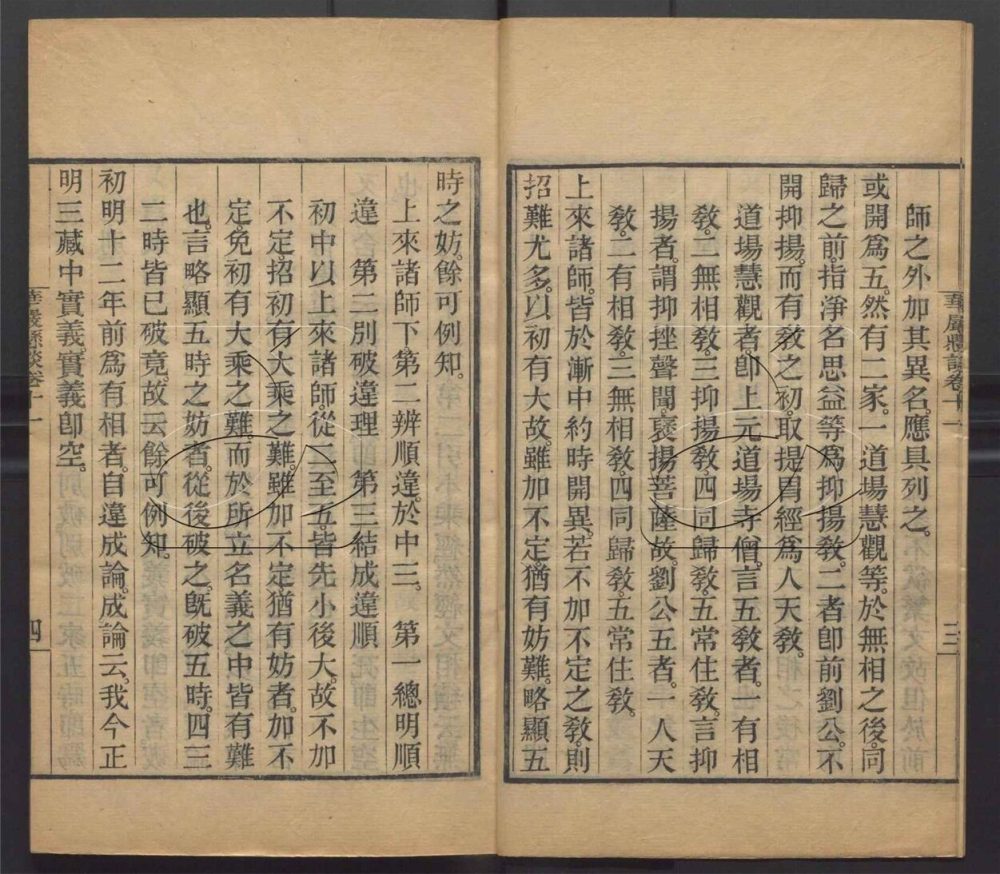 師之外加其異名。應具列之。
或開爲五。然有二家。一道場慧觀等。於無相之後。同
歸之前。指淨名思益等爲抑揚敎。二者卽前劉公。不
開抑揚。而有敎之初。取提胃經爲人天敎。
道場慧觀者。卽上元道場寺僧。言五敎者。一有相
敎。二無相敎。三抑揚敎。四同歸敎。五常住敎。言抑
揚者。謂抑挫聲聞。褒揚菩薩故。劉公五者。一人天
敎。二有相敎。三無相敎。四同歸敎。五常住敎。
上來諸師。皆於漸中約時開異。若不加不定之敎。則
招難尤多。以初有大故。雖加不定。猶有妨難。略顯五
華嚴懸談卷十一
三
時之妨。餘可例知。
上來諸師下第二辨順違。於中三。 第一總明順
違 第二別破違理 第三結成違順
初中以上來諸師從二至五皆先小後大。故不加
不定。招初有大乘之難。雖加不定猶有妨者。加不
定。免初有大乘之難。而於所立名義之中皆有難
也。言略顯五時之妨者。從後破之。旣破五時。四三
二時皆已破竟。故云餘可例知。
初明十二年前爲有相者。自違成論。成論云。我今正
明三藏中實義。實義卽空。
華嚴懸談卷十一
四